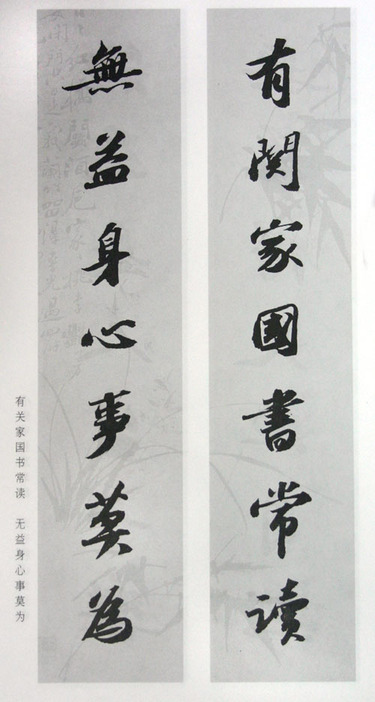 有関家國書常读
無益身心事莫為
有关家国书常读 无益身心事莫为